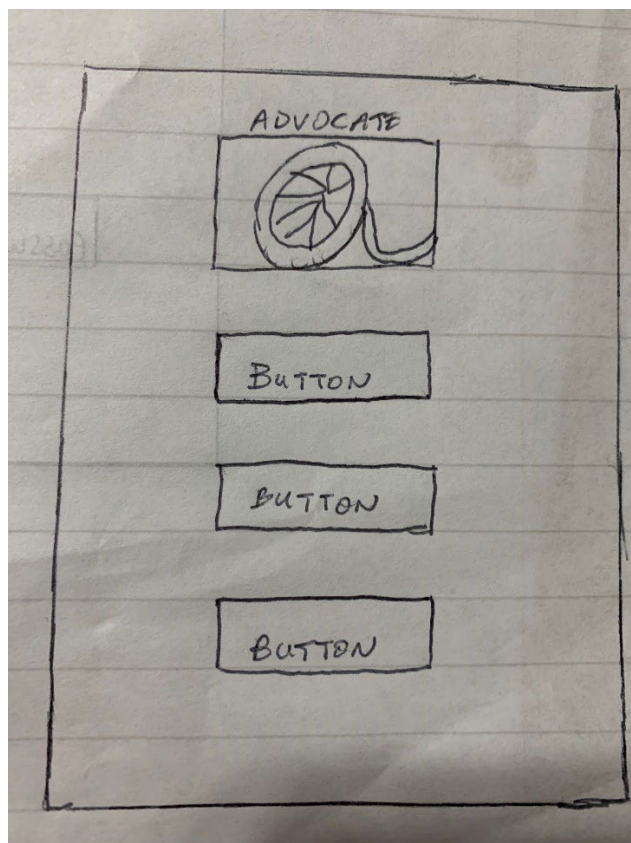 ADVOCATE
BUTTON
BUTTON
BUTTON